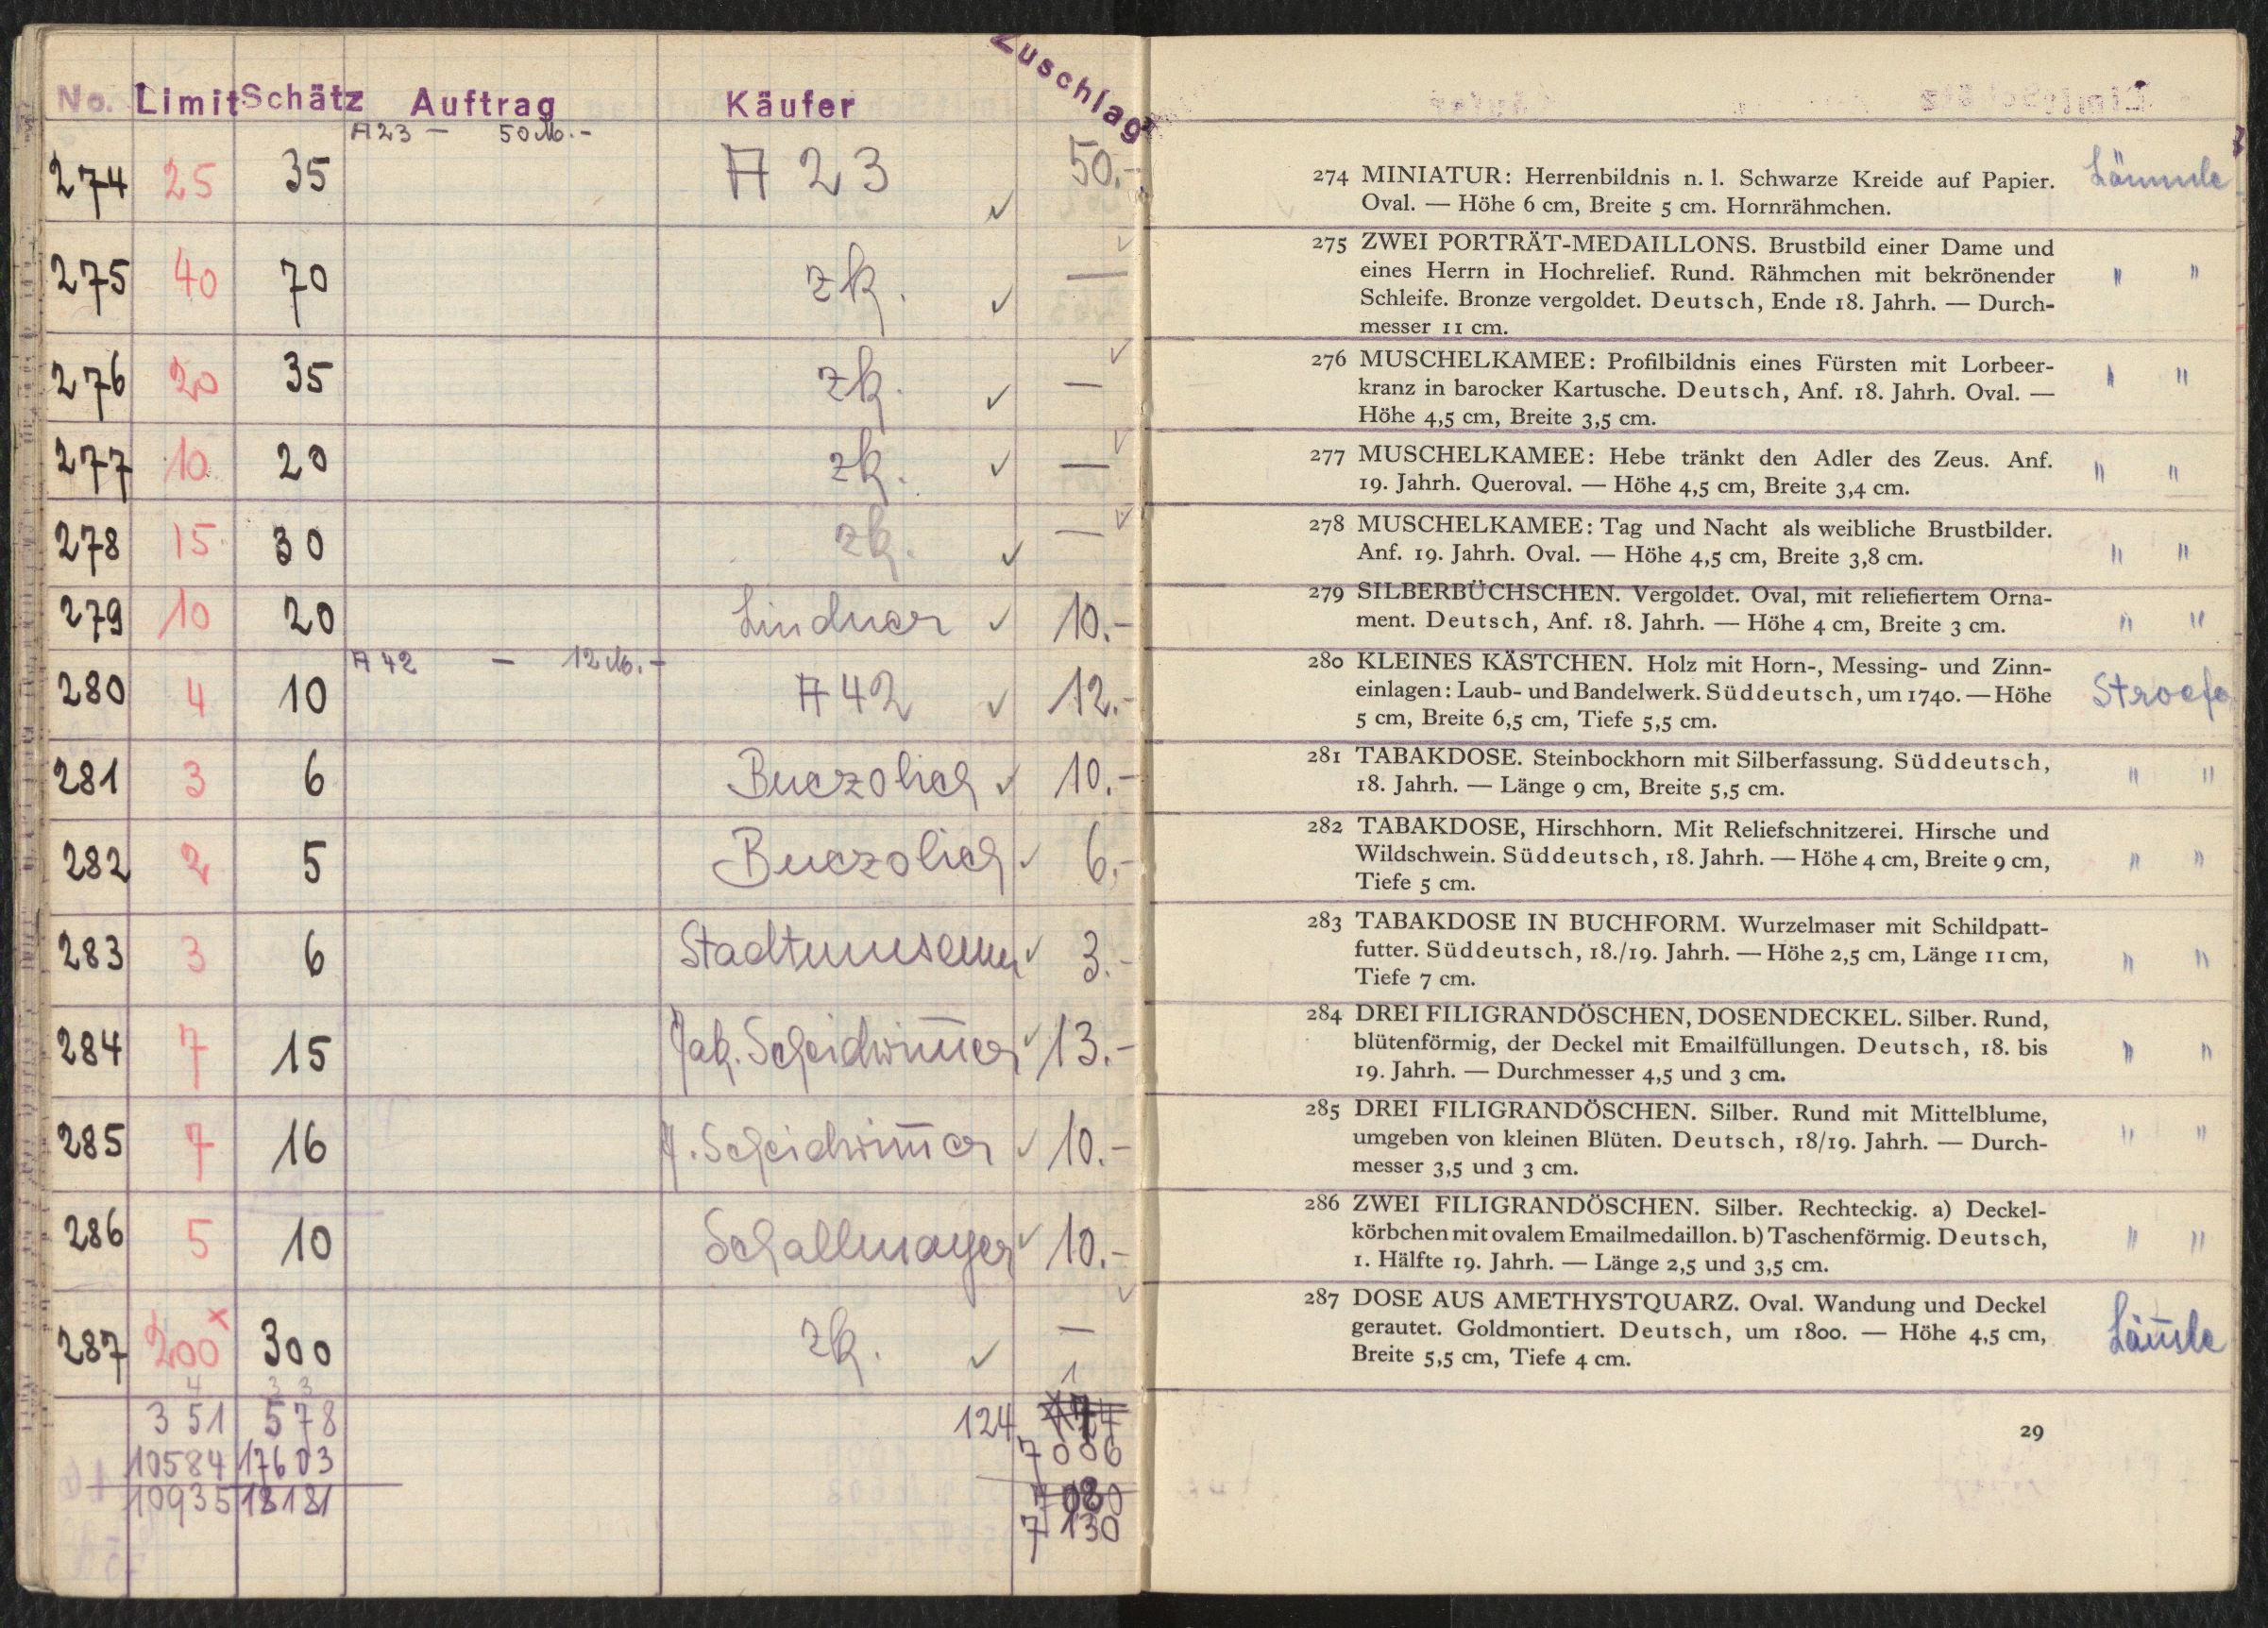 No. Limit Schätz Auftrag Käufer Zuschlag
A 23 — 50 M.-
274 25 35 A 23 ✓ 50.-
275 40 70 zk. ✓ —
276 20 35 zk. ✓ —
277 10 20 zk. ✓ —
278 15 30 zk. ✓ —
279 10 20 Lindner ✓ 10.-
A 42 — 12 M.-
280 4 10 A 42 ✓ 12.-
281 3 6 Buczolich ✓ 10.-
282 2 5 Buczolich ✓ 6.-
283 3 6 Stadtmuseum ✓ 3.-
284 7 15 Jak. Scheidwimmer ✓ 13.-
285 7 16 J. Scheidwimmer ✓ 10.-
286 5 10 Schallmayer ✓ 10.-
287 200 x 300 zk. ✓ —
4 3 3 1
351 578 124
10584 17603 7006
10935 18181 7080
7130
274 MINIATUR: Herrenbildnis n. l. Schwarze Kreide auf Papier.
Oval. — Höhe 6 cm, Breite 5 cm. Hornrähmchen.
Lämmle
275 ZWEI PORTRÄT-MEDAILLONS. Brustbild einer Dame und
eines Herrn in Hochrelief. Rund. Rähmchen mit bekrönender " "
Schleife. Bronze vergoldet. Deutsch, Ende 18. Jahrh. — Durch-
messer 11 cm.
276 MUSCHELKAMEE: Profilbildnis eines Fürsten mit Lorbeer-
kranz in barocker Kartusche. Deutsch, Anf. 18. Jahrh. Oval. — " "
Höhe 4,5 cm, Breite 3,5 cm.
277 MUSCHELKAMEE: Hebe tränkt den Adler des Zeus. Anf. " "
19. Jahrh. Queroval. — Höhe 4,5 cm, Breite 3,4 cm.
278 MUSCHELKAMEE: Tag und Nacht als weibliche Brustbilder.
Anf. 19. Jahrh. Oval. — Höhe 4,5 cm, Breite 3,8 cm. " "
279 SILBERBÜCHSCHEN. Vergoldet. Oval, mit reliefiertem Orna-
ment. Deutsch, Anf. 18. Jahrh. — Höhe 4 cm, Breite 3 cm. " "
280 KLEINES KÄSTCHEN. Holz mit Horn-, Messing- und Zinn-
einlagen: Laub- und Bandelwerk. Süddeutsch, um 1740. — Höhe
5 cm, Breite 6,5 cm, Tiefe 5,5 cm.
281 TABAKDOSE. Steinbockhorn mit Silberfassung. Süddeutsch, " "
18. Jahrh. — Länge 9 cm, Breite 5,5 cm.
282 TABAKDOSE, Hirschhorn. Mit Reliefschnitzerei. Hirsche und
Wildschwein. Süddeutsch, 18. Jahrh. — Höhe 4 cm, Breite 9 cm, " "
Tiefe 5 cm.
283 TABAKDOSE IN BUCHFORM. Wurzelmaser mit Schildpatt-
futter. Süddeutsch, 18./19. Jahrh. — Höhe 2,5 cm, Länge 11 cm, " "
Tiefe 7 cm.
284 DREI FILIGRANDÖSCHEN, DOSENDECKEL. Silber. Rund,
blütenförmig, der Deckel mit Emailfüllungen. Deutsch, 18. bis " "
19. Jahrh. — Durchmesser 4,5 und 3 cm.
285 DREI FILIGRANDÖSCHEN. Silber. Rund mit Mittelblume,
umgeben von kleinen Blüten. Deutsch, 18/19. Jahrh. — Durch- " "
messer 3,5 und 3 cm.
286 ZWEI FILIGRANDÖSCHEN. Silber. Rechteckig. a) Deckel-
körbchen mit ovalem Emailmedaillon. b) Taschenförmig. Deutsch, " "
1. Hälfte 19. Jahrh. — Länge 2,5 und 3,5 cm.
287 DOSE AUS AMETHYSTQUARZ. Oval. Wandung und Deckel
gerautet. Goldmontiert. Deutsch, um 1800. — Höhe 4,5 cm, Lämle
Breite 5,5 cm, Tiefe 4 cm.
29